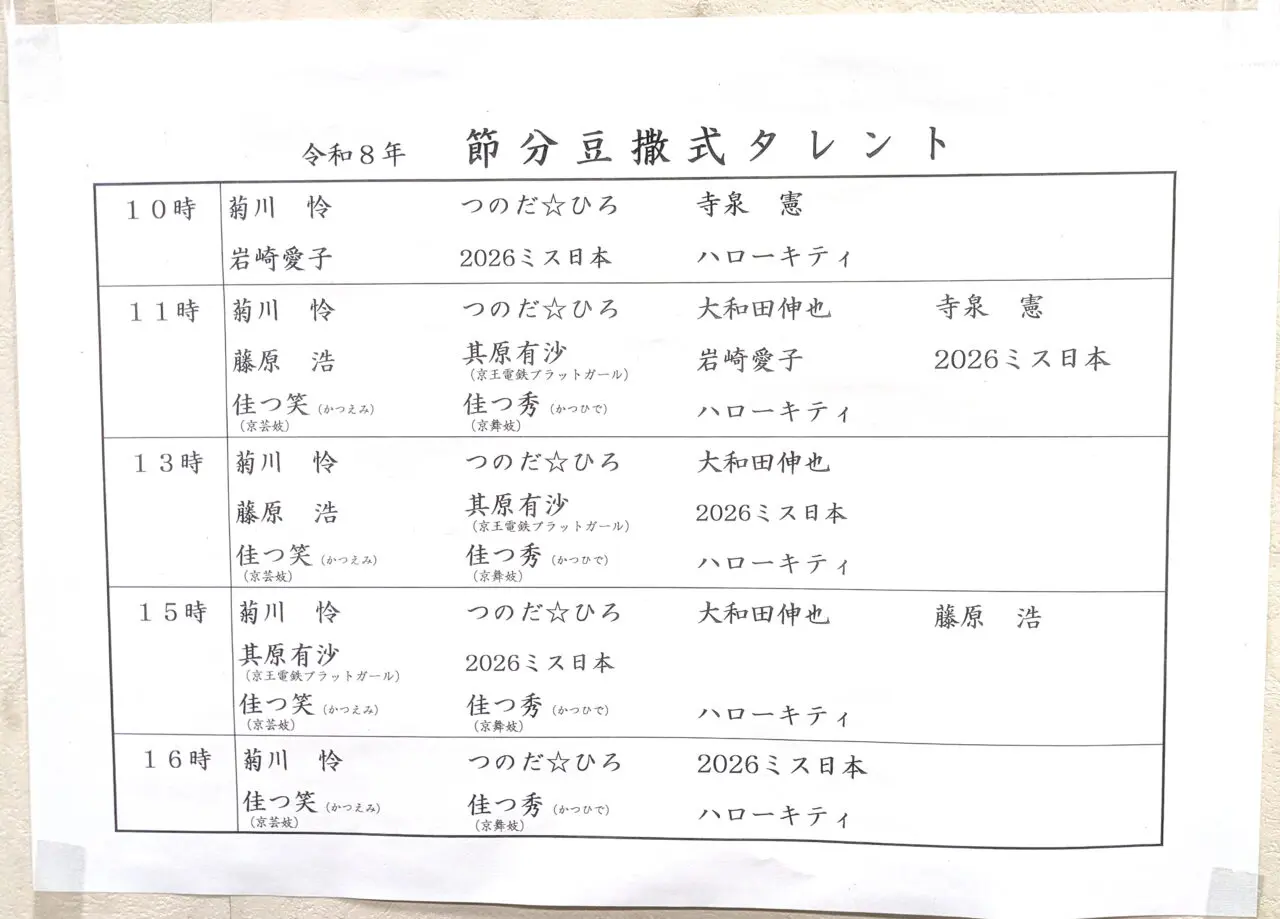 令和８年 節分豆撒式タレント
１０時 菊川 怜 つのだ☆ひろ 寺泉 憲
岩崎愛子 2026ミス日本 ハローキティ
１１時 菊川 怜 つのだ☆ひろ 大和田伸也 寺泉 憲
藤原 浩 其原有沙 岩崎愛子 2026ミス日本
（京王電鉄プラットガール）
佳つ笑（かつえみ） 佳つ秀（かつひで） ハローキティ
（京芸妓） （京舞妓）
１３時 菊川 怜 つのだ☆ひろ 大和田伸也
藤原 浩 其原有沙 2026ミス日本
（京王電鉄プラットガール）
佳つ笑（かつえみ） 佳つ秀（かつひで） ハローキティ
（京芸妓） （京舞妓）
１５時 菊川 怜 つのだ☆ひろ 大和田伸也 藤原 浩
其原有沙 2026ミス日本
（京王電鉄プラットガール）
佳つ笑（かつえみ） 佳つ秀（かつひで） ハローキティ
（京芸妓） （京舞妓）
１６時 菊川 怜 つのだ☆ひろ 2026ミス日本
佳つ笑（かつえみ） 佳つ秀（かつひで） ハローキティ
（京芸妓） （京舞妓）